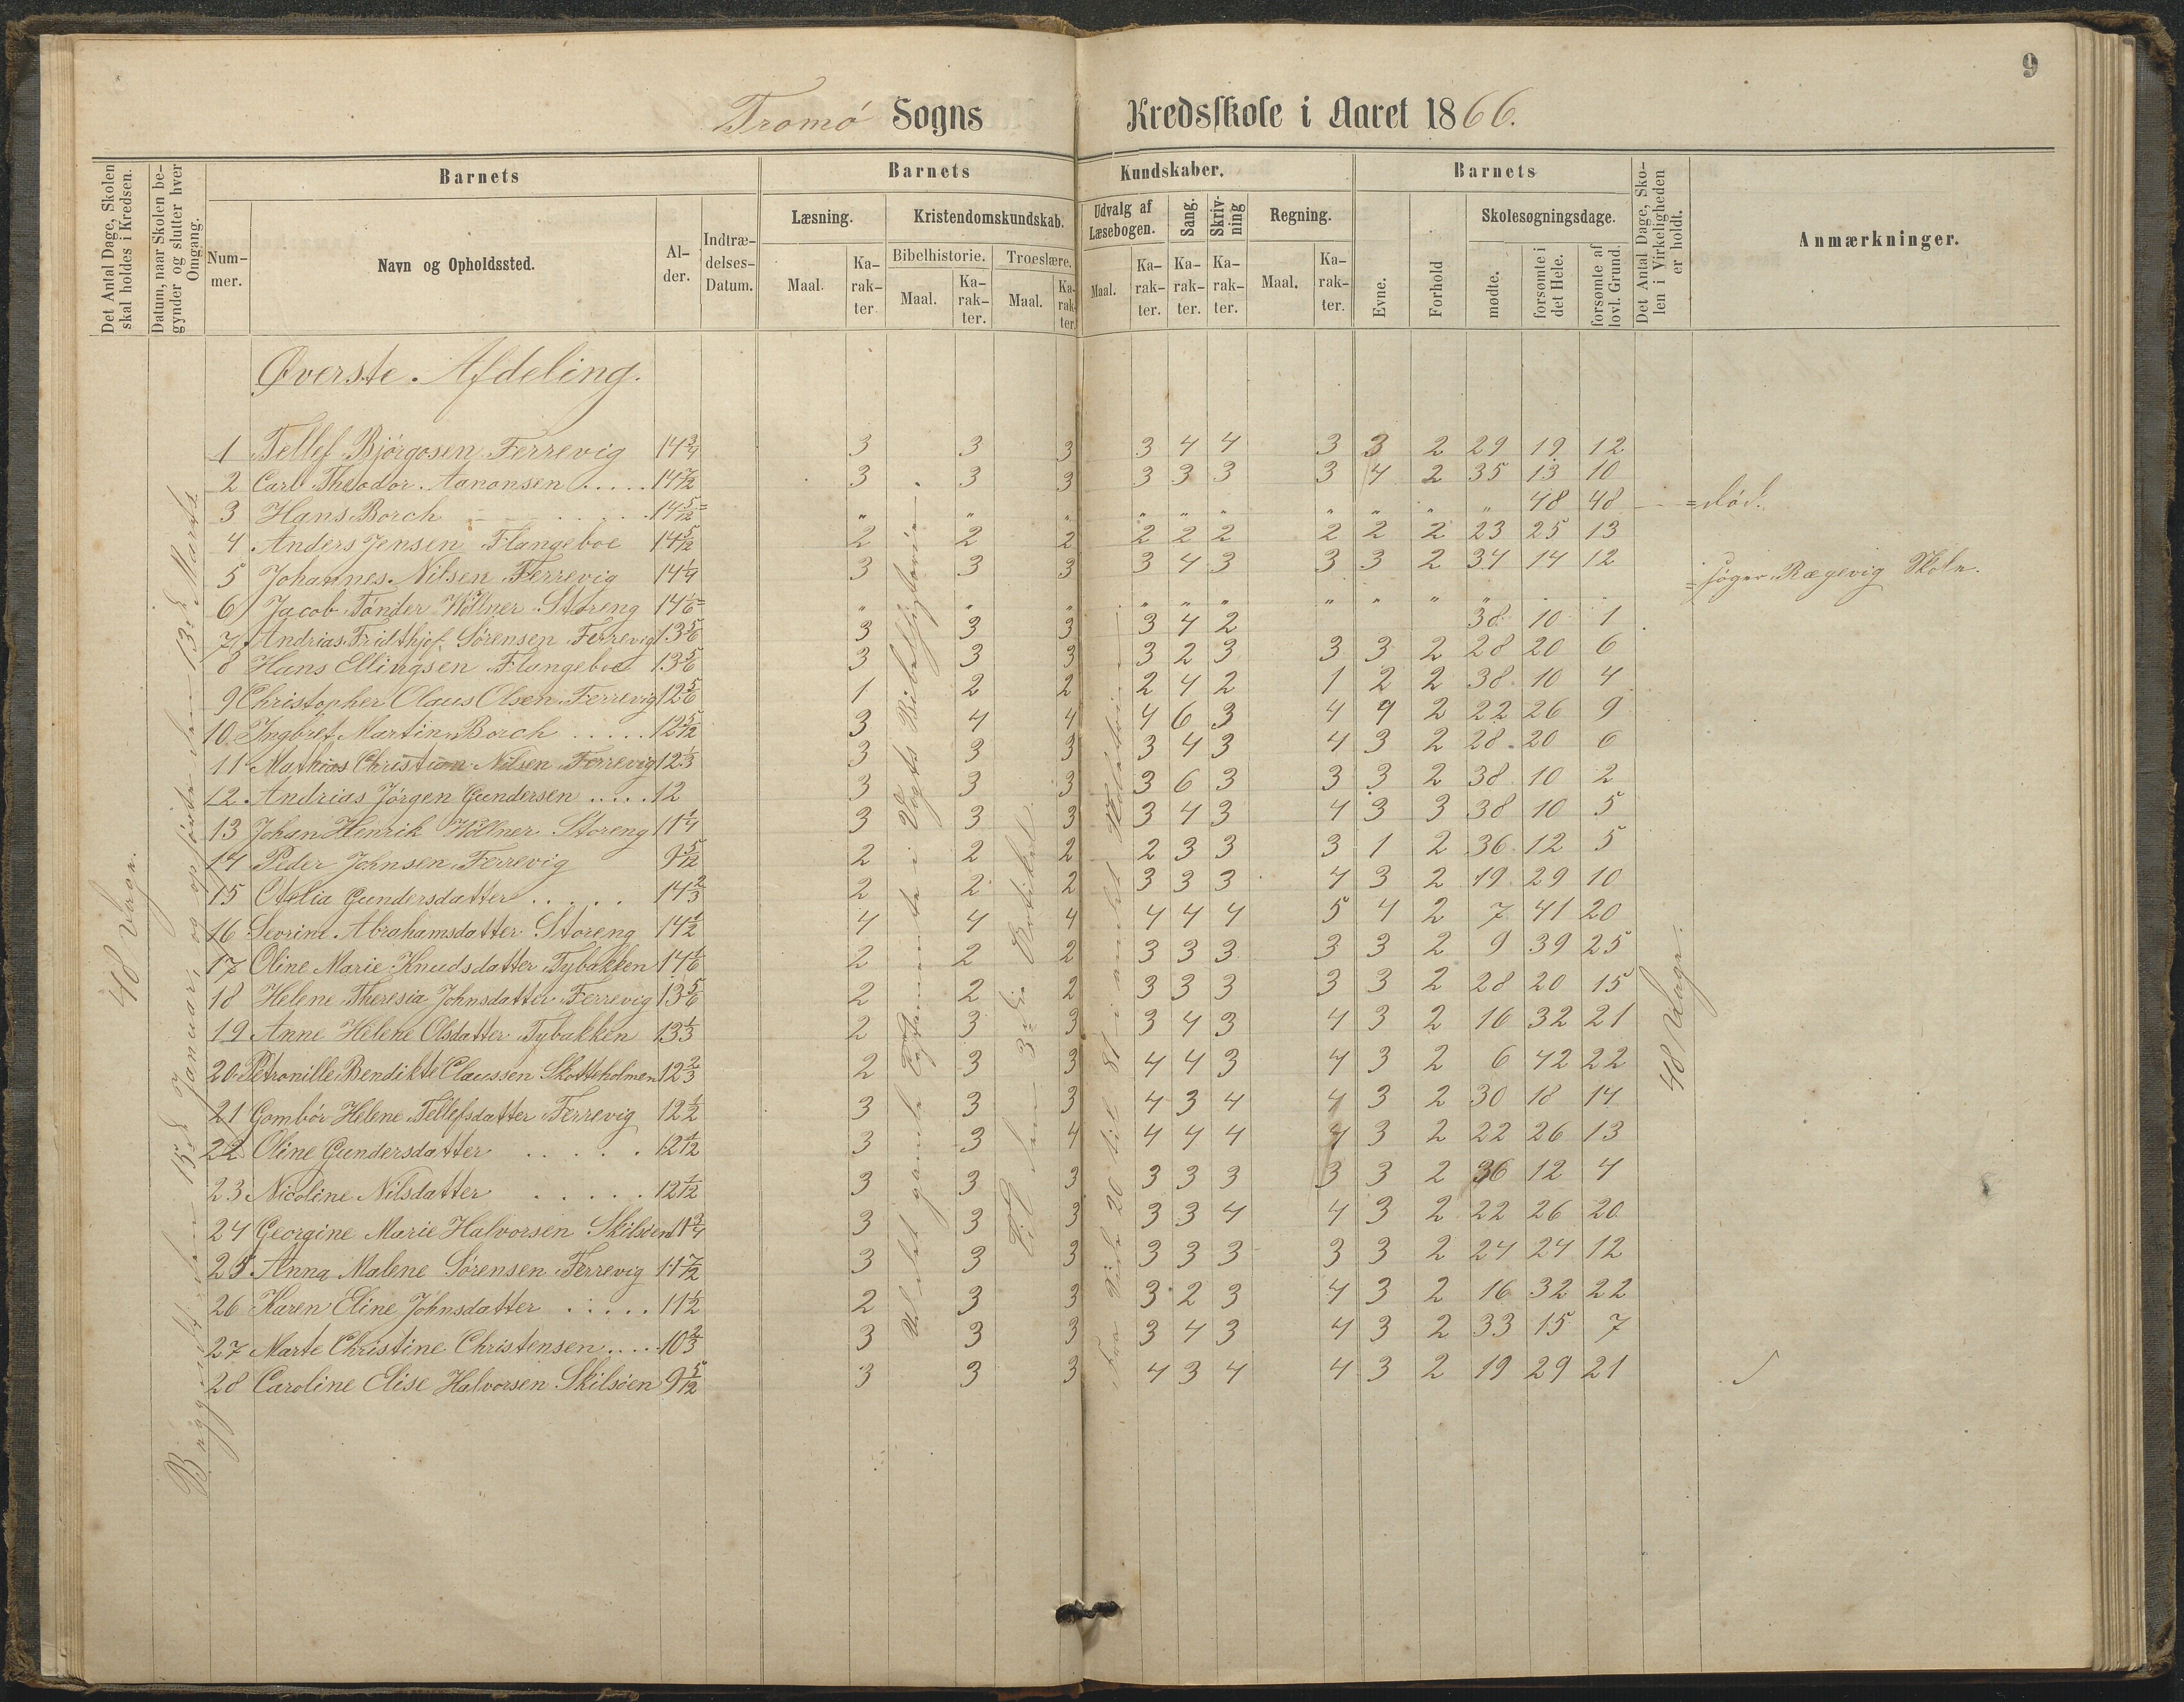 9
Tromø Sogns Kredsskole i Aaret 1866.
Det Antal Dage, Skolen skal holdes i Kredsen.
Datum, naar Skolen begynder og slutter hver Omgang.
Barnets
Nummer.
Navn og Opholdssted.
Alder.
Indtrædelses-Datum.
Barnets Kundskaber.
Læsning.
Maal.
Karakter
Kristendomskundskab.
Bibelhistorie.
Maal.
Karakter.
Troeslære.
Maal.
Karakter.
Udvalg af Læsebogen.
Maal.
Karakter.
Sang.
Karakter.
Skrivning
Karakter.
Regning.
Maal.
Karakter.
Barnets
Evne.
Forhold
Skolesøgningsdage.
mødte.
forsømte i det Hele.
forsømte af lovl. Grund
Det Antal Dage, Skolen i Virkeligheden er holdt.
Anmærkninger.
Øverste Afdeling.
48 Dage.
Begyndt den 15de Januari og ophørte den 13de Marts
1 Tellef Bjørgosen Ferrevig 14 3/4 3 3 3 3 4 4 3 3 2 29 19 12
2 Carl Theodor Aanonsen ..... 14 7/12 3 3 3 3 3 3 3 4 2 35 13 10
3 Hans Borch 14 5/12 = " " " " " " " " " " 48 48 = død.
4 Anders Jensen Flangeboe 14 5/12 2 2 2 2 2 2 2 2 2 23 25 13
5 Johannes Nilsen Ferrevig 14 1/4 3 3 3 3 4 3 3 3 2 34 14 12
6 Jacob Tønder Wöllner Storeng 14 1/6 = " " " " " " " " " " " " = søger Rægevig Skole.
7 Andrias Fridthjof Sørensen Ferrevig 13 5/6 3 3 3 3 4 2 38 10 1
8 Hans Ellingsen Flangeboe 13 5/6 3 3 3 3 2 3 3 3 2 28 20 6
9 Christopher Claus Olsen Ferrevig 12 5/6 1 2 2 2 4 2 1 2 2 38 10 4
10 Ingbret Martin Borch ..... 12 5/12 3 4 4 4 6 3 4 4 2 22 26 9
11 Mathias Christian Nilsen Ferrevig 12 1/3 3 3 3 3 4 3 4 3 2 28 20 6
12 Andrias Jørgen Gundersen ..... 12 3 3 3 3 6 3 3 3 2 38 10 2
13 Johan Henrik Wöllner Storeng 11 1/4 3 3 3 3 4 3 4 3 3 38 10 5
14 Peder Johnsen Ferrevig 9 5/12 2 2 2 2 3 3 3 1 2 36 12 5
15 Otelia Gundersdatter ..... 14 2/3 2 2 2 3 3 3 4 3 2 19 29 10
16 Sevrine Abrahamsdatter Storeng 14 1/2 4 4 4 4 4 4 5 4 2 7 41 20
17 Oline Marie Knudsdatter Tybakken 14 1/6 2 2 2 3 3 3 3 3 2 9 39 25
18 Helene Theresia Johnsdatter Ferrevig 13 5/6 2 2 2 3 3 3 3 3 2 28 20 15
19 Anne Helene Olsdatter Tybakken 13 1/3 2 3 3 3 4 3 4 3 2 16 32 21
20 Petronille Bendikte Claussen Skotteholmen 12 2/3 2 3 3 4 4 3 4 3 2 6 42 22
21 Gombør Helene Tellefsdatter Ferrevig 12 1/2 3 3 3 4 3 4 4 3 2 30 18 14
22 Oline Gundersdatter ..... 12 1/12 3 3 4 4 4 4 4 3 2 22 26 13
23 Nicoline Nilsdatter ..... 12 1/12 3 3 3 3 3 3 3 3 2 36 12 4
24 Georgine Marie Halvorsen Skilsöen 11 3/4 3 3 3 3 3 4 4 3 2 22 26 20
25 Anna Malene Sørensen Ferrevig 11 7/12 3 3 3 3 3 3 3 3 2 24 24 12
26 Karen Eline Johnsdatter ..... 11 1/2 2 3 3 3 2 3 4 3 2 16 32 22
27 Marte Christine Christensen ..... 10 2/3 3 3 3 3 4 3 4 3 2 33 15 7
28 Caroline Elise Halvorsen Skilsöen 9 5/12 3 3 3 4 3 4 4 3 2 19 29 21
Af det gamle Testamente i Vogts Bibelhistorie.
Til den 3die Artikel.
Fra Side 20 til 81 i andet
48 Dage.